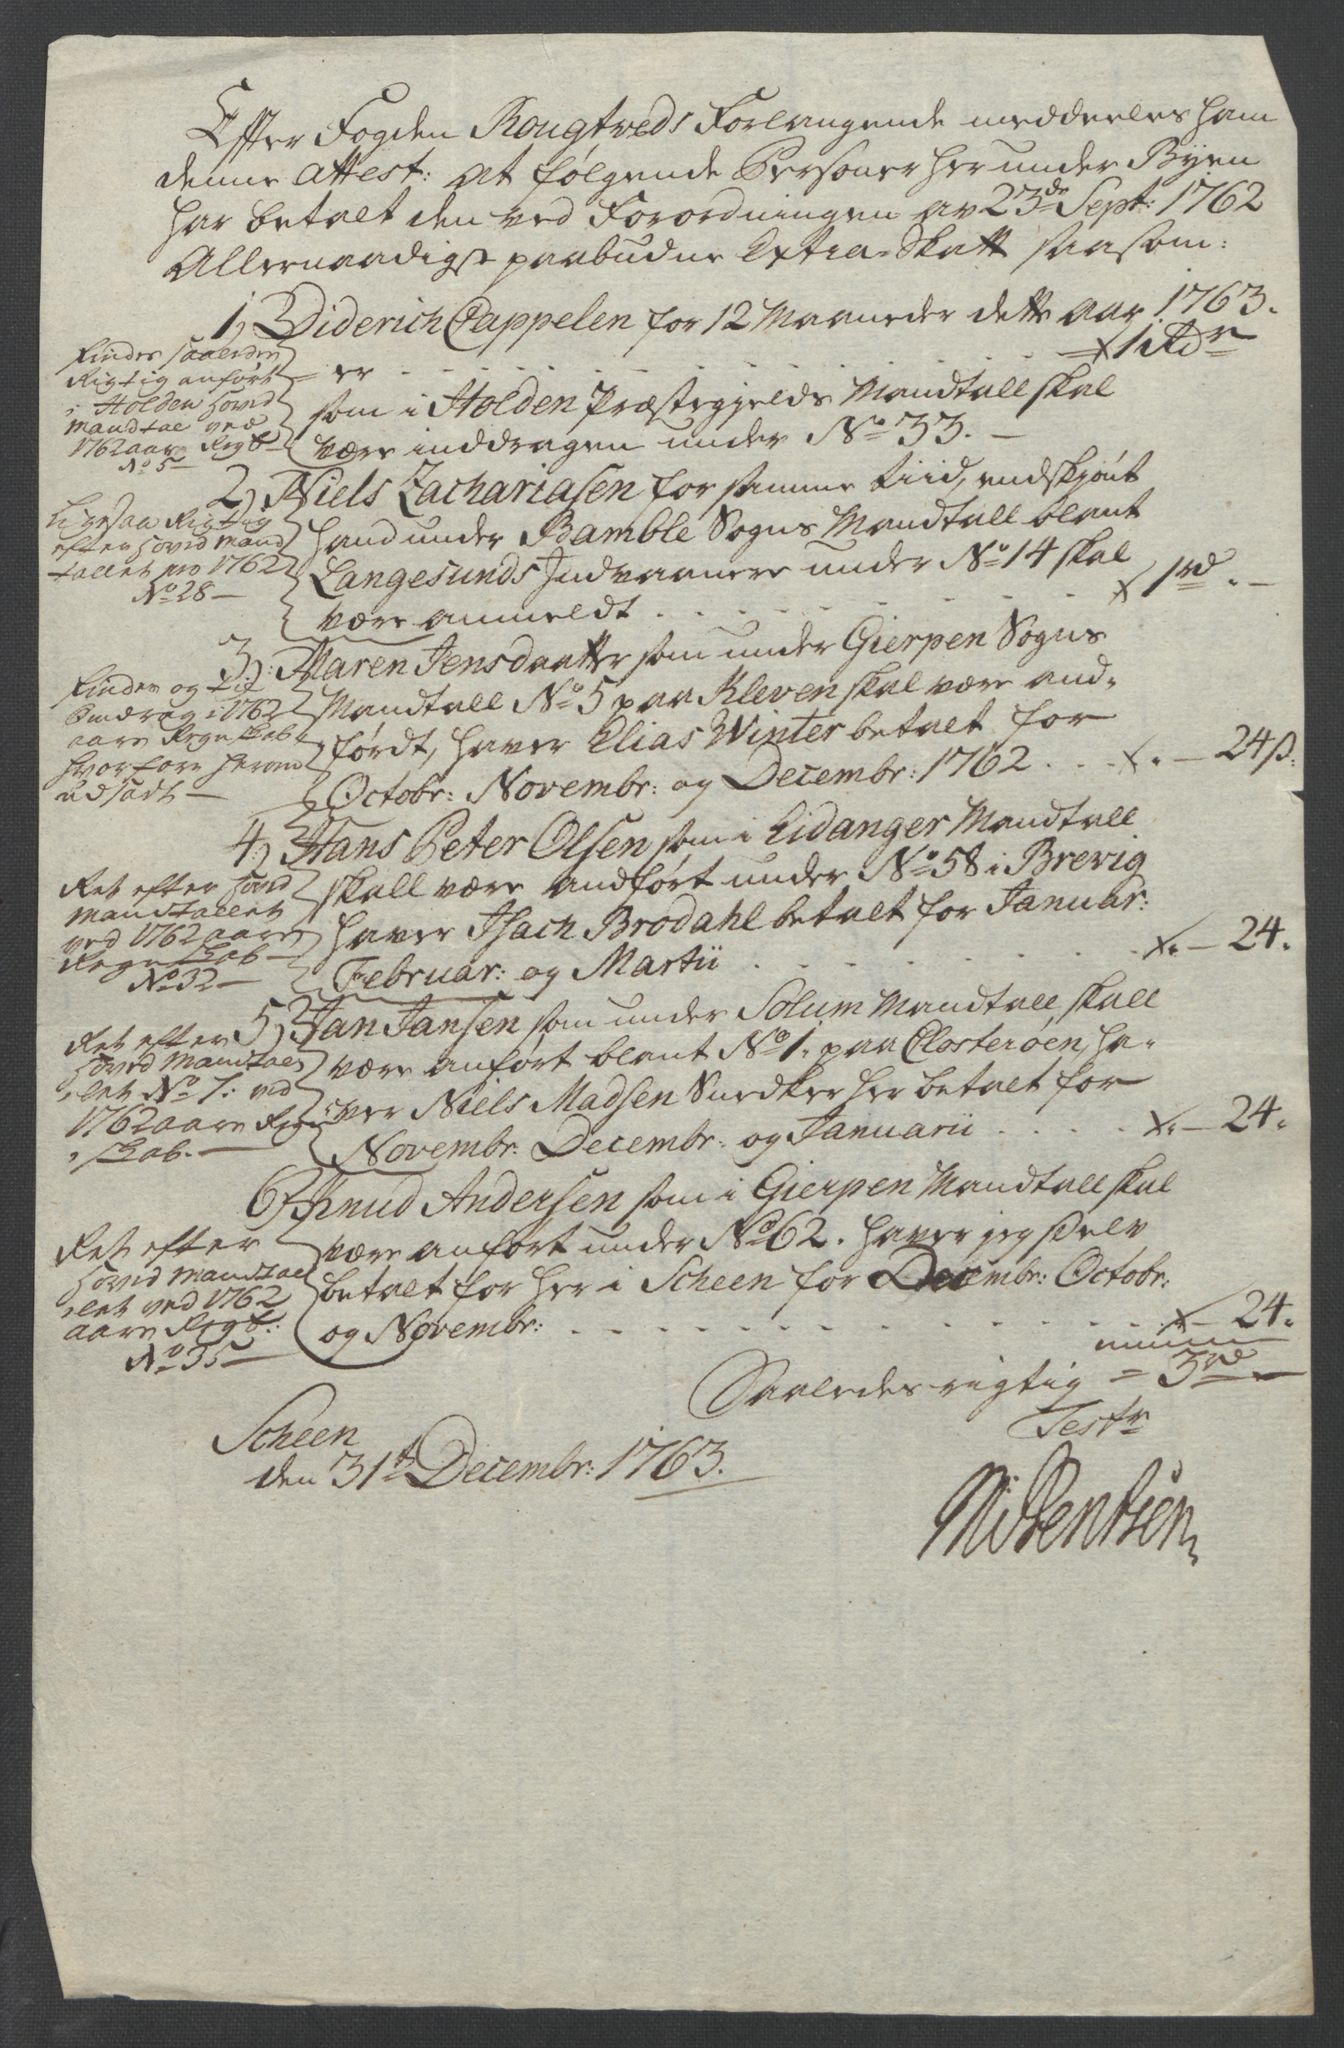 Efter Fogden Rougtveds Forlangende meddeeles ham
denne Attest: At følgende Personer her under Byen
har betalt den ved Forordningen av 23de Sept: 1762
Allernaadigst paabudne Extra-Skatt saasom:
1, Diderich Cappelen for 12 Maaneder dette aar 1763.
er . . . . . . . . . . 1 rdr
som i Holden Præstegjelds Mandtall skal
være inddragen under No 33. —
Findes saaledes
Rigtig anført
i Holden hovid
Mandtal ved
1762 aars Regsk
No 5 —
2, Niels Zachariasen for samme tiid, endskjönt
hand under Bamble Sogns Mandtall blant
Langesunds Indvaanere under No 14 skal
være anmeldt . . . . . . . 1 rd. —
Ligesaa Rigtig
efter hovid Mand
tallet pro 1762
No 28 —
3, Maren Jensdaatter som under Gierpen Sogns
Mandtall No 5 paa Kleven skal være and-
fördt, haver Elias Winter betalt for
Octobr: Novembr: og Decembr: 1762 . . . — 24 ß.
Findes og
Inddrag i 1762
aars Regnskab
hvorfore herom
udsadt —
4, Hans Peter Olsen som i Eidanger Mandtall
skall være andfört under No 58 i Brevig
haver Isach Brodahl betalt for Januar:
Februar: og Martii . . . . . . — 24.
Ret efter hovid
Mandtallet
ved 1762 aars
Regnskab —
No 32 —
5, Jan Jansen som under Solum Mandtall skall
være anfört blant No 1. paa Closterøen, ha-
ver Niels Madsen Snedker her betalt for
Novembr: Decembr: og Januarii . . . . — 24.
Ret efter
hovid Mandtal
let No 1: ved
1762 aars Regn
skab. —
6, Knud Andersen som i Gierpen Mandtall skal
være anfört under No 62. haver jeg selv
betalt for her i Scheen for Decembr: Octobr:
og Novembr: . . . . . . . . — 24.
Ret efter
hovid Mandtal
let ved 1762
aars Regsk:
No 35 —
Saaledes rigtig = 3 rd —
Scheen
den 31te Decembr: 1763.
Testr